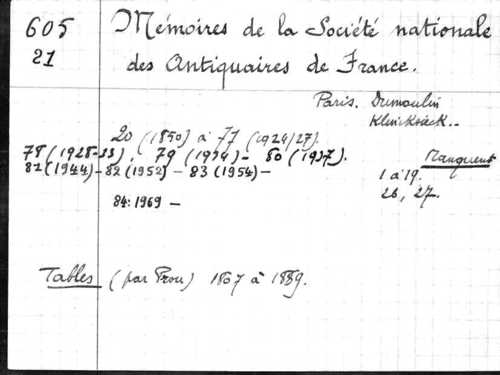 605
21
Mémoires de la Société nationale
des Antiquaires de France.
Paris. Dumoulin
Klincksieck..
20 (1850) à 77 (1924/27).
78 (1928-33), 79 (1934) - 80 (1937).
81 (1944) - 82 (1952) - 83 (1954) -
84: 1969 -
Manquent
1 à 19.
26, 27.
Tables (par Prou) 1807 à 1889.